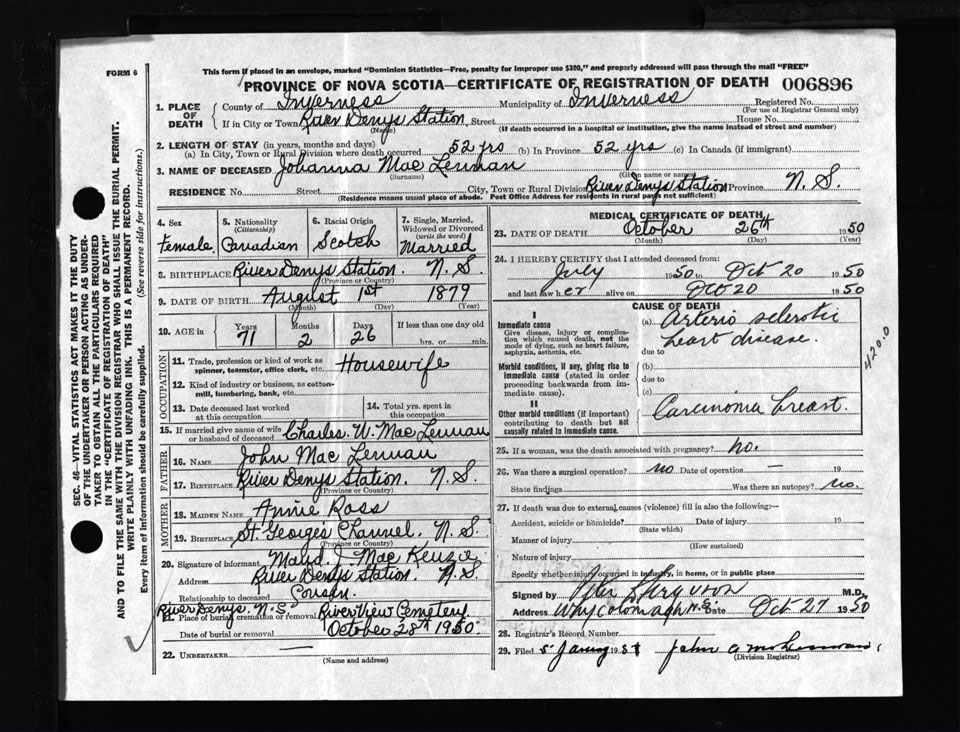 FORM 6
This form if placed in an envelope, marked "Dominion Statistics—Free, penalty for improper use $300," and properly addressed will pass through the mail "FREE"
PROVINCE OF NOVA SCOTIA—CERTIFICATE OF REGISTRATION OF DEATH 006896
1. PLACE OF DEATH County of Inverness Municipality of Inverness Registered No.
(For use of Registrar General only)
If in City or Town River Denys Station Street House No.
(Name) (If death occurred in a hospital or institution, give the name instead of street and number)
2. LENGTH OF STAY (in years, months and days)
(a) In City, Town or Rural Division where death occurred 52 yrs (b) In Province 52 yrs (c) In Canada (if immigrant)
3. NAME OF DECEASED Johanna Mac Lennan
(Surname) (Given name or names)
RESIDENCE No. Street City, Town or Rural Division River Denys Station Province N. S.
(Residence means usual place of abode. Post Office Address for residents in rural parts not sufficient)
4. Sex 5. Nationality (Citizenship) 6. Racial Origin 7. Single, Married, Widowed or Divorced (write the word)
Female Canadian Scotch Married
8. BIRTHPLACE River Denys Station. N. S.
(Province or Country)
9. DATE OF BIRTH August 1st 1879
(Month) (Day) (Year)
10. AGE in Years Months Days If less than one day old
71 2 26 hrs. or min.
OCCUPATION
11. Trade, profession or kind of work as spinner, teamster, office clerk, etc. Housewife
12. Kind of industry or business, as cotton-mill, lumbering, bank, etc.
13. Date deceased last worked at this occupation 14. Total yrs. spent in this occupation
15. If married give name of wife or husband of deceased Charles. W. Mac Lennan
FATHER
16. NAME John Mac Lennan
17. BIRTHPLACE River Denys Station. N. S.
(Province or Country)
MOTHER
18. MAIDEN NAME Annie Ross
19. BIRTHPLACE St. Georges Channel. N. S.
(Province or Country)
20. Signature of informant Maud J. Mac Kenzie
Address River Denys Station. N. S.
Relationship to deceased Cousin
River Denys. N. S.
21. Place of burial cremation or removal Riverview Cemetery
Date of burial or removal October 28th 1950.
22. UNDERTAKER —
(Name and address)
MEDICAL CERTIFICATE OF DEATH
23. DATE OF DEATH October 26th 1950
(Month) (Day) (Year)
24. I HEREBY CERTIFY that I attended deceased from:
July 1950 to Oct 20 1950
and last saw her alive on Oct 20 1950
CAUSE OF DEATH
I
Immediate cause
Give disease, injury or complication which caused death, not the mode of dying, such as heart failure, asphyxia, asthenia, etc.
(a) Arterio sclerotic heart disease.
due to
Morbid conditions, if any, giving rise to immediate cause (stated in order proceeding backwards from immediate cause).
(b)
due to
(c)
II
Other morbid conditions (if important) contributing to death but not causally related to immediate cause.
Carcinoma breast.
420.0
25. If a woman, was the death associated with pregnancy? no.
26. Was there a surgical operation? no Date of operation — 19
State findings Was there an autopsy? no.
27. If death was due to external causes (violence) fill in also the following:—
Accident, suicide or homicide? Date of injury 19
(State which)
Manner of injury
(How sustained)
Nature of injury
Specify whether injury occurred in industry, in home, or in public place
Signed by M.D.
Address Whycocomagh N.S. Date Oct 27 1950
28. Registrar's Record Number
29. Filed 5 19 51 John
(Division Registrar)
SEC. 46—VITAL STATISTICS ACT MAKES IT THE DUTY
OF THE UNDERTAKER OR PERSON ACTING AS UNDER-
TAKER TO OBTAIN ALL THE PARTICULARS REQUIRED
IN THE "CERTIFICATE OF REGISTRATION OF DEATH"
AND TO FILE THE SAME WITH THE DIVISION REGISTRAR WHO SHALL ISSUE THE BURIAL PERMIT.
WRITE PLAINLY WITH UNFADING INK. THIS IS A PERMANENT RECORD.
Every item of information should be carefully supplied. (See reverse side for instructions.)